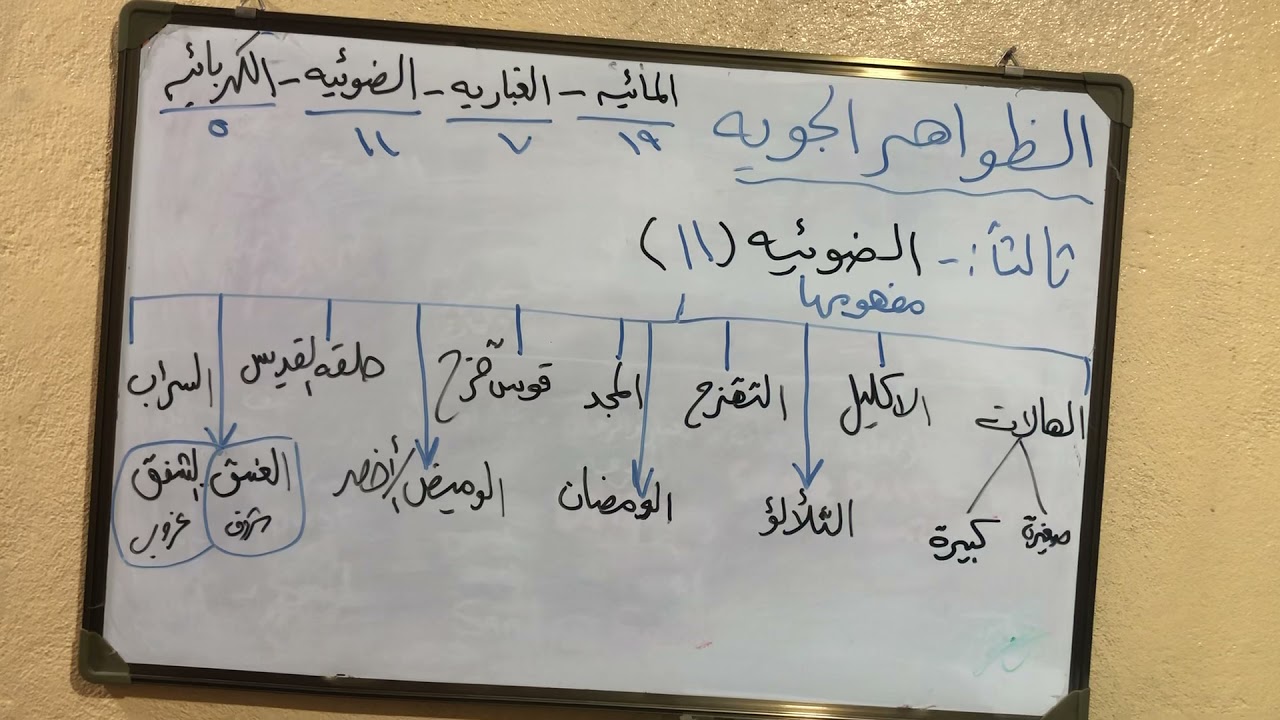 الظواهر الجويه
المائيه - الغباريه - الضوئيه - الكهربائيه
١٩ ٧ ١١ ٥
ثالثاً :- الضوئيه (١١)
مفهومها
الهالات الاكليل التقزح المجد قوس قزح حلقه القديس السراب
صغيرة كبيرة التلألؤ الومضان الوميض الأخضر الغسق الشفق
شروق غروب